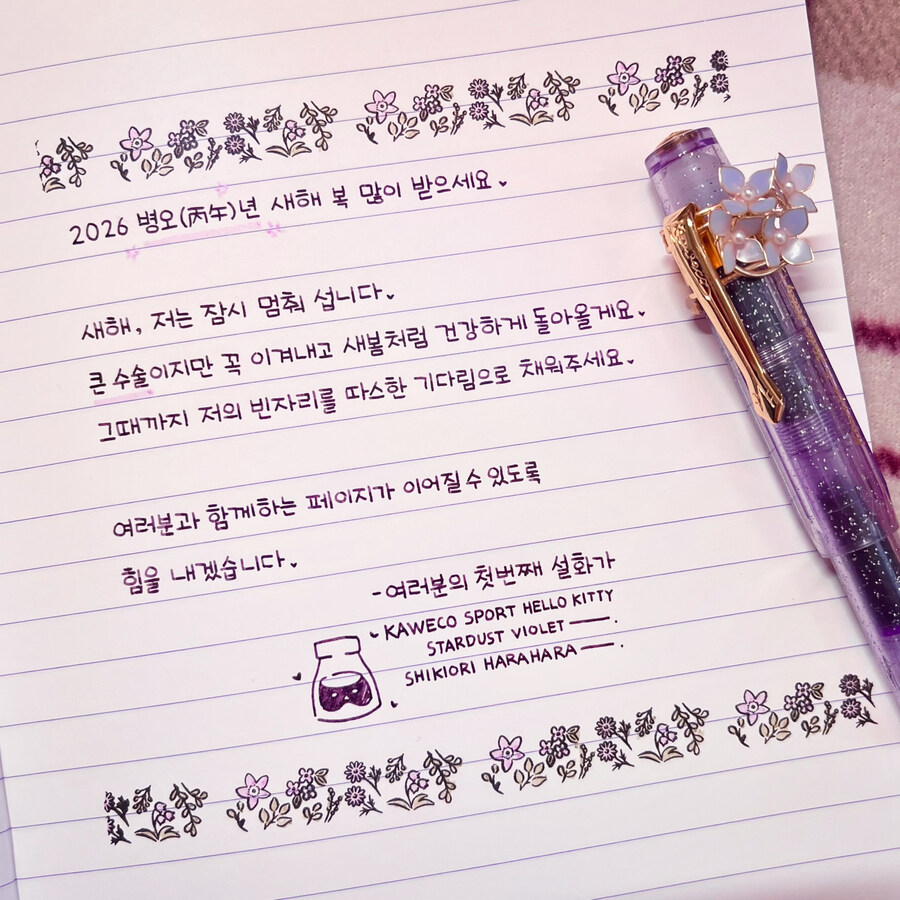 2026 병오(丙午)년 새해 복 많이 받으세요.
새해, 저는 잠시 멈춰 섭니다.
큰 수술이지만 꼭 이겨내고 새봄처럼 건강하게 돌아올게요.
그때까지 저의 빈자리를 따스한 기다림으로 채워주세요.
여러분과 함께하는 페이지가 이어질 수 있도록
힘을 내겠습니다.
-여러분의 첫번째 설화가
KAWECO SPORT HELLO KITTY
STARDUST VIOLET —.
SHIKIORI HARAHARA —.